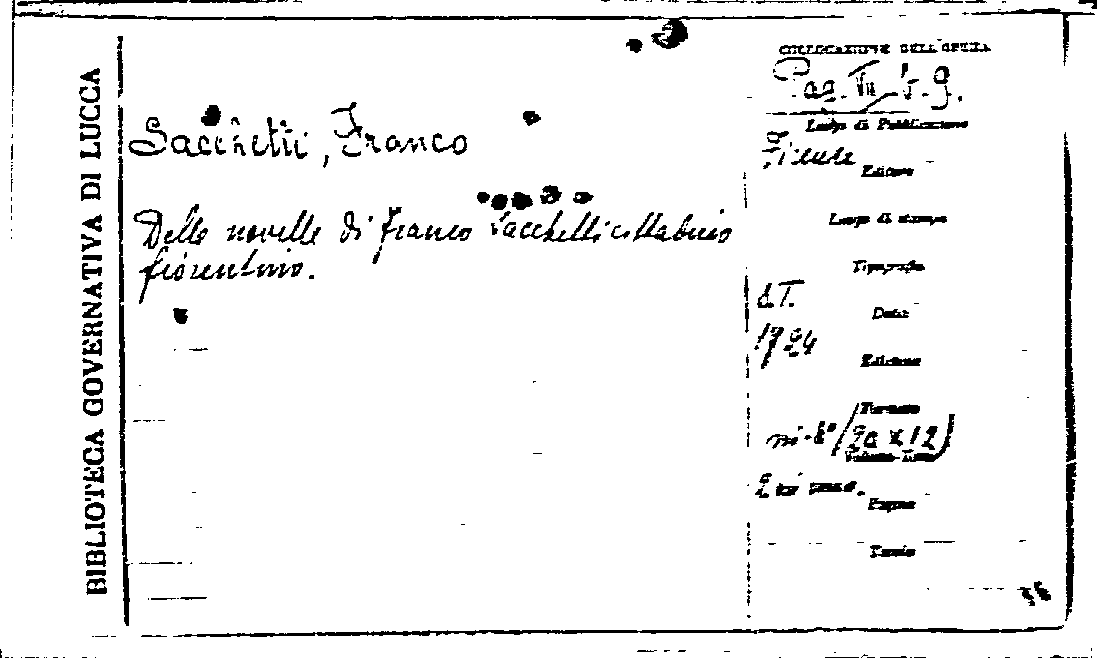 BIBLIOTECA GOVERNATIVA DI LUCCA
Sacchetti, Franco
Delle novelle di Franco Sacchetti cittadino
fiorentino.
COLLOCAZIONE DELL'OPERA
Pag.
Luogo di Pubblicazione
Firenze
Editore
Luogo di stampa
Tipografia
s.T.
Data
1724
Edizione
Formato
in-8° (20 x 12)
Volume-Tomo
2 in uno.
Pagine
Tavole